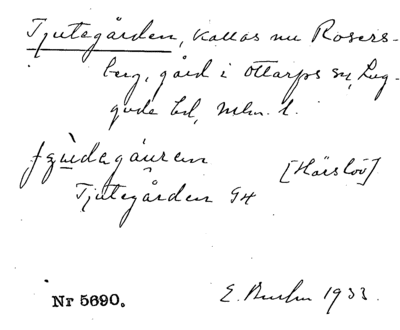 Tjutegården, kallas nu Rosers-
berg, gård i Ottarps sn, Lug-
gude hd, Mlm. l.
[Härslöv]
Tjutegården GH
Nr 5690. E. 1933.